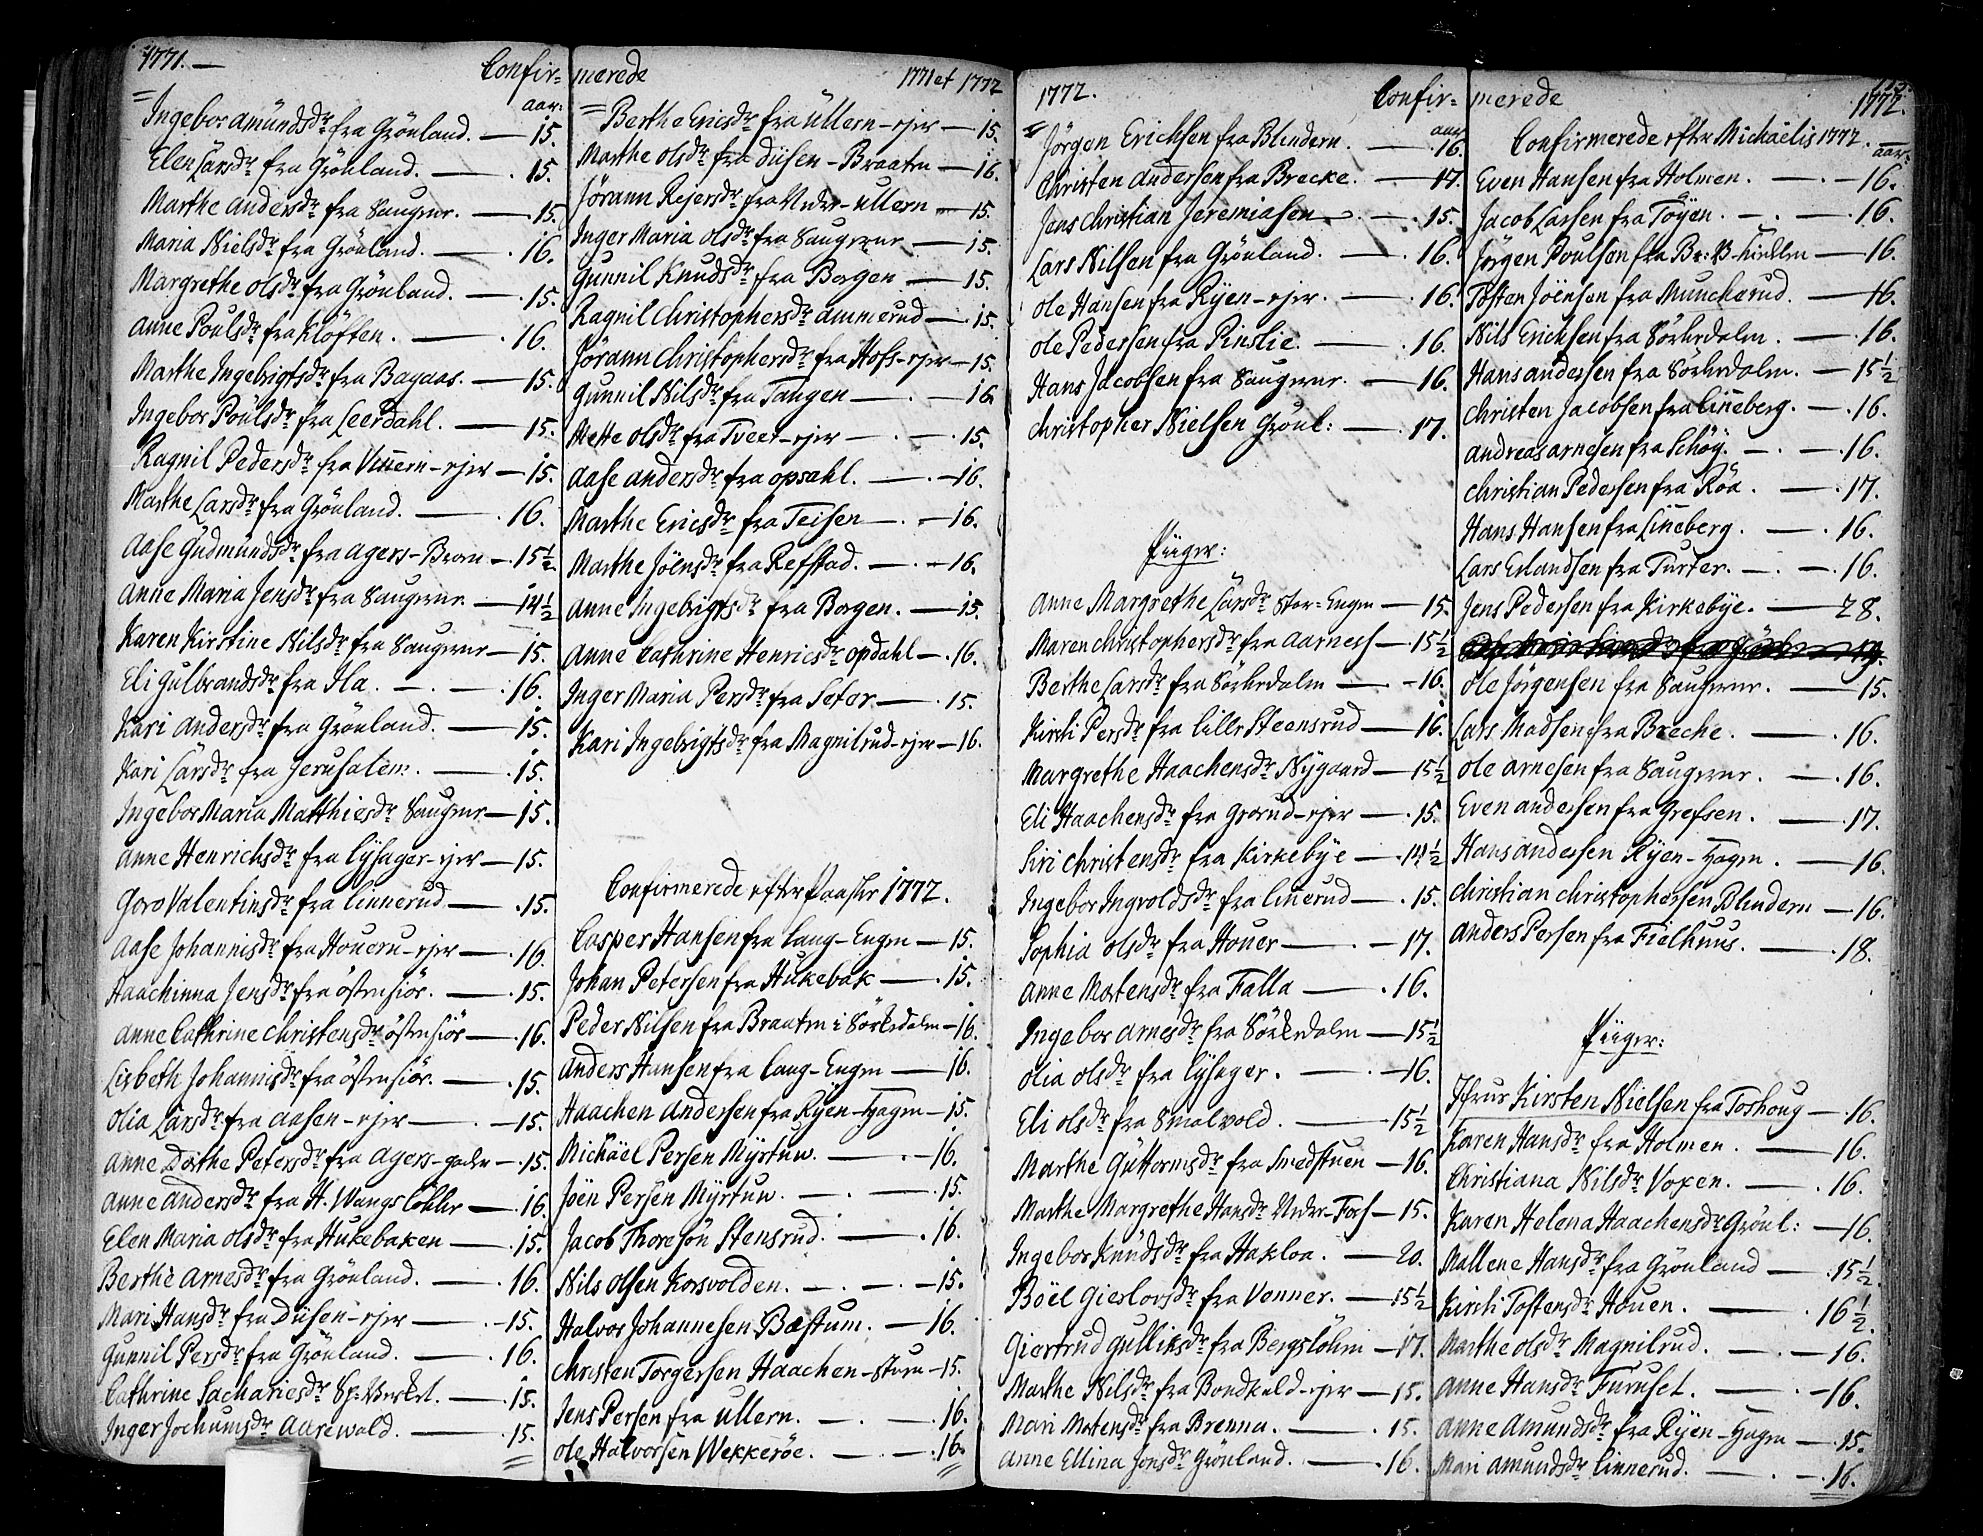 1771. — Confir=
aar:
Ingebor Amunds dr fra Grönland. — 15.
Elen Lars dr fra Grönland. — 15.
Marthe Anders dr fra Saugerne. — 15.
Maria Niels dr fra Grönland. — 16.
Margrethe Ols dr fra Grönland. — 15.
Anne Pouls dr fra Klöften. — 16.
Marthe Ingebrigts dr fra Bagaas. — 15.
Ingebor Pouls dr fra Leerdahl. — 15.
Ragnil Peders dr fra -ejer — 15.
Marthe Lars dr fra Grönland. — 16.
Aase Gudmunds dr fra Agers- — 15½
Anne Maria Jens dr fra Saugerne — 14½
Karen Kirstine Nils dr fra Saugerne — 15.
Eli Gulbrands dr fra Ila. — 16.
Kari Anders dr fra Grönland. — 15.
Kari Lars dr fra Jerusalem. — 15.
Ingebor Maria Matthies dr Saugerne — 15.
Anne Henrichs dr fra Lysager-ejer — 15.
Goro Valentins dr fra Linnerud. — 15.
Aase Johannis dr fra -ejer — 16.
Haachinna Jens dr fra Östensiör. — 15.
Anne Cathrine Christens dr Östensiör — 16.
Lisbeth Johannis dr fra Östensiör. — 15.
Olia Lars dr fra Aasen-ejer — 15.
Anne Dorthe Peters dr fra Agers-gaden — 15.
Anne Anders dr fra H. Wangs Lökker — 16.
Elen Maria Ols dr fra Hukebaken — 15.
Berthe Arnes dr fra Grönland. — 16.
Mari Hans dr fra Diisen-ejer — 15.
Gunnil Pers dr fra Grönland. — 16.
Cathrine Sacharies dr Sp: Verket. — 15.
Inger Jochums dr Aarewold. — 15.
merede 1771 et 1772
Berthe Erics dr fra Ullern-ejer — 15.
Marthe Ols dr fra Diisen-Braaten — 16.
Jörann Rejers dr fra Neder-Ullern — 15.
Inger Maria Ols dr fra Saugerne — 15.
Gunnil Knuds dr fra Borgen — 15.
Ragnil Christophers dr Ammerud — 15.
Jörann Christophers dr fra Hofs-ejer — 15.
Gunnil Nils dr fra Tangen — 16.
Mette Ols dr fra Tveet-ejer — 15.
Aase Anders dr fra Opsahl. — 16.
Marthe Erics dr fra Teisen — 16.
Marthe Joens dr fra Refstad. — 16.
Anne Ingebrigts dr fra Borgen. — 15.
Anne Cathrine Henrics dr Opdahl — 16.
Inger Maria Pers dr fra Seter — 15.
Kari Ingebrigts dr fra Magnilrud-ejer — 16.
Confirmerede efter Paaske 1772.
Casper Hansen fra Lang-Engen — 15.
Johan Petersen fra Hukebak — 15.
Peder Nilsen fra Braaten i Sörkedalen — 16.
Anders Hansen fra Lang-Engen — 16.
Haachen Andersen fra Ryen-Hagen — 15.
Michäel Persen Myrtuen. — 16.
Joen Persen Myrtuen. — 15.
Jacob Thoresön Stensrud. — 16.
Nils Olsen Korsvolden. — 15.
Halvor Johannesen Bæstum. — 16.
Christen Torgersen Haachen-stuen — 15.
Jens Persen fra Ullern. — 16.
Ole Halvorsen Wekkerøe. — 16.
1772. Confir=
aar
Jörgen Erichsen fra Blindern. — 16.
Christen Andersen fra Brecke. — 17.
Jens Christian Jeremiasen — 15.
Lars Nilsen fra Grönland. — 16.
Ole Hansen fra Ryen-ejer. — 16.
Ole Pedersen fra Pinslie. — 16.
Hans Jacobsen fra Saugerne. — 16.
Christopher Nielsen Grönl: — 17.
Piiger:
Anne Margrethe Lars dr Stor-Engen — 15.
Maren Christophers dr fra Aarnes — 15½
Berthe Lars dr fra Sörkedalen — 16.
Kirsti Pers dr fra Lille Steensrud — 16.
Margrethe Haachens dr Nygaard — 15½
Eli Haachens dr fra Grorud-ejer — 15.
Siri Christens dr fra Kirkebye — 14½
Ingebor Ingvolds dr fra Linerud — 15.
Sophia Ols dr fra Houer — 17.
Anne Mortens dr fra Falla — 16.
Ingebor Arnes dr fra Sörkedalen — 15½
Olia Ols dr fra Lysager. — 16.
Eli Ols dr fra Smalvold. — 15½
Marthe Guttorms dr fra Smedstuen — 16.
Marthe Margrethe Hans dr Neder-Foss — 15.
Ingebor Knuds dr fra Hakloa. — 20.
Böel Gieslovs dr fra Venner. — 15½
Giertrud Gulliks dr fra Bergslöhm — 17.
Marthe Nils dr fra Bondkald-ejer — 15.
Mari Mortens dr fra Brenna. — 15.
Anne Ellina Jons dr Grönland. — 16.
merede 1772.
Confirmerede efter Michäelis 1772.
aar:
Even Hansen fra Holmen. — 16.
Jacob Larsen fra Töyen. — 16.
Jörgen Poulsen fra — 16.
Tosten Joensen fra Munckerud. — 16.
Nils Erichsen fra Sörkedalen. — 16.
Hans Andersen fra Sörkedalen. — 15½
Christen Jacobsen fra Lineberg. — 16.
Andreas Arnesen fra Schöy. — 16.
Christian Pedersen fra Röa. — 17.
Hans Hansen fra Lineberg. — 16.
Lars Erlandsen fra Turter. — 16.
Jens Pedersen fra Kirkebye. — 28.
Ole Jörgensen fra Saugerne. — 15.
Lars Madsen fra Brecke. — 16.
Ole Arnesen fra Saugerne. — 16.
Even Andersen fra Grefsen. — 17.
Hans Andersen Ryen-Hagen. — 16.
Christian Christophersen Blindern — 16.
Anders Persen fra Fielhuus. — 18.
Piiger:
Jfrue Kirsten Nielsen fra Toshoug — 16.
Karen Hans dr fra Holmen. — 16.
Christiana Nils dr Voxen. — 16.
Karen Helena Haachens dr Grönl: — 16.
Mallene Hans dr fra Grönland — 15½
Kirsti Tostens dr Houen. — 16½
Marthe Ols dr Magnilrud. — 16.
Anne Hans dr Furuset. — 16.
Anne Amunds dr fra Ryen-Hagen — 15.
Mari Amunds dr Linnerud. — 16.